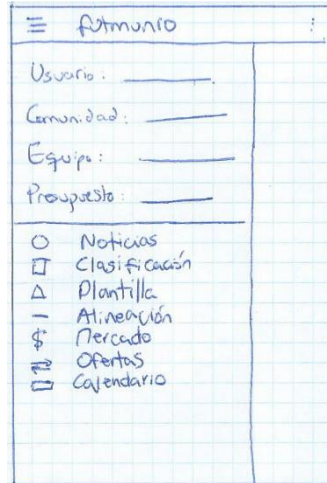 futmunio
Usuario:
Comunidad:
Equipo:
Presupuesto:
Noticias
Clasificación
Plantilla
Alineación
$ Mercado
Ofertas
Calendario